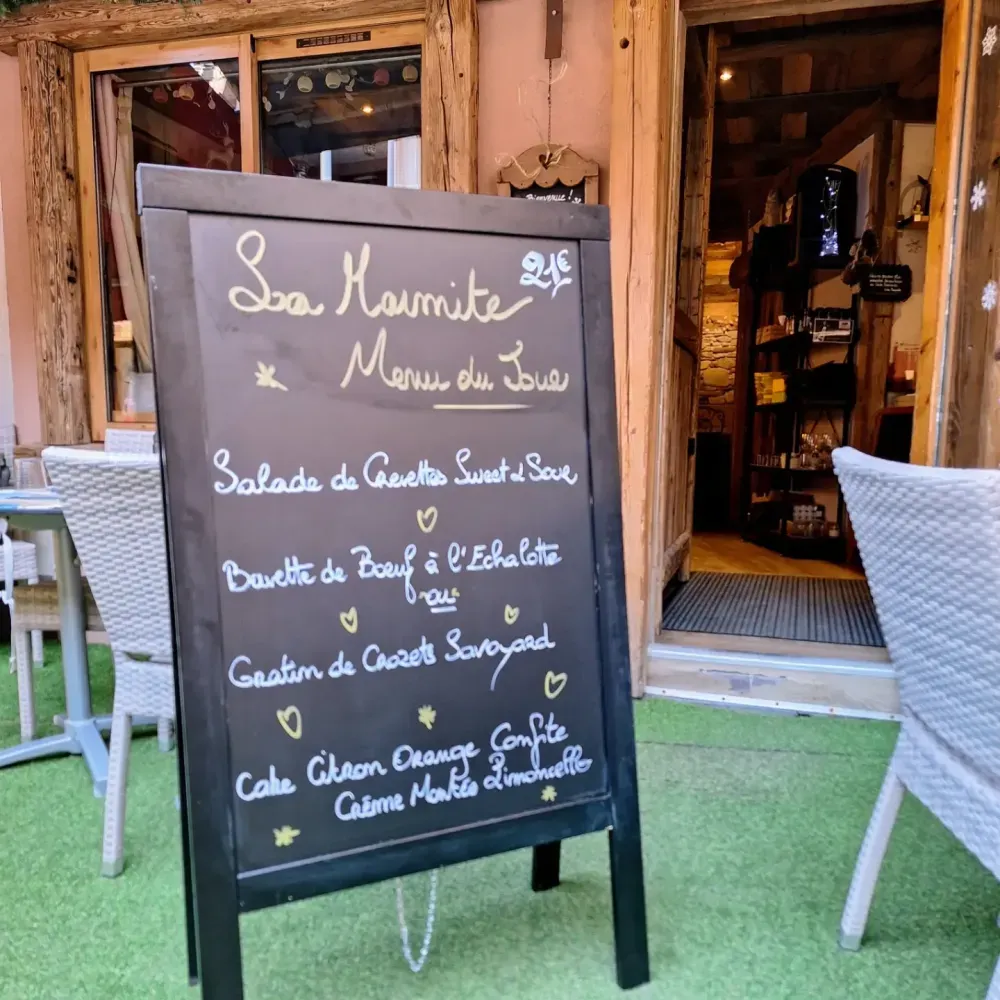 Bienvenue !
La Marmite
21€
Menu du Jour
Salade de Crevettes Sweet & Sour
Bavette de Boeuf à l'Echalotte
ou
Gratin de Crozets Savoyard
Cake Citron Orange Confite
Crème Montée Limoncello